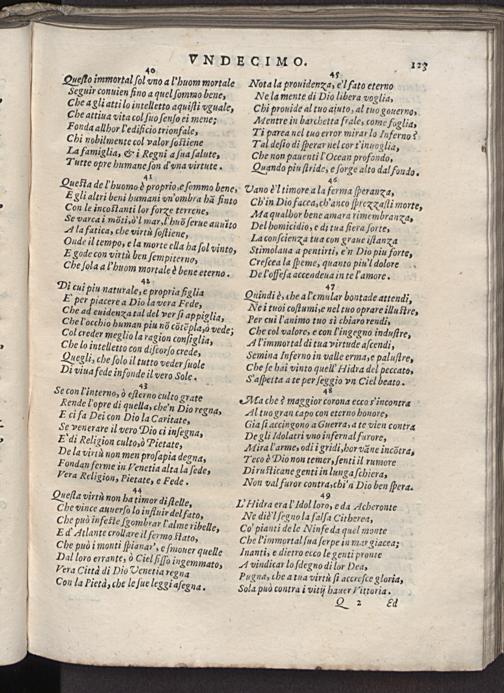 VNDECIMO.
123
40
Questo immortal sol vno a l'huom mortale
Seguir conuien fino a quel sommo bene,
Che a gli atti lo intelletto aquisti vguale,
Che attiua vita col suo senso ei mene;
Fonda allhor l'edificio trionfale,
Chi nobilmente col valor sostiene
La famiglia, & i Regni a sua salute,
Tutte opre humane son d'vna virtute.
41
Questa de l'huomo è proprio, e sommo bene,
E gli altri beni humani vn'ombra hã finto
Con le incostanti lor forze terrene,
Se varca i mõti, ò'l mar, l'huõ serue auuito
A la fatica, che virtù sostiene,
Onde il tempo, e la morte ella ha sol vinto,
E gode con virtù ben sempiterno,
Che sola a l'huom mortale è bene eterno.
42
Di cui piu naturale, e propria figlia
E' per piacere a Dio la vera Fede,
Che ad euidenza tal del ver si appiglia,
Che l'occhio human piu nõ cõtẽpla, ò vede;
Col creder meglio la ragion consiglia,
Che lo intelletto con discorso crede,
Quegli, che solo il tutto veder suole
Di viua fede infonde il vero Sole.
43
Se con l'interno, ò esterno culto grate
Rende l'opre di quella, che'n Dio regna,
E ci fa Dei con Dio la Caritate,
Se venerare il vero Dio ci insegna,
E' di Religion culto, ò Pietate,
De la virtù non men prosapia degna,
Fondan ferme in Venetia alta la sede,
Vera Religion, Pietate, e Fede.
44
Questa virtù non ha timor di stelle,
Che vince auuerso lo influir del fato,
Che può infeste sgombrar l'alme ribelle,
E d'Atlante crollare il fermo stato,
Che può i monti spianar', e smouer quelle
Dal loro errante, ò Ciel fisso ingemmato,
Vera Città di Dio Venetia regna
Con la Pietà, che le sue leggi asegna.
45
Nota la prouidenza, e'l fato eterno
Ne la mente di Dio libera voglia,
Chi prouide al tuo aiuto, al tuo gouerno,
Mentre in barchetta frale, come foglia,
Ti parea nel tuo error mirar lo Inferno?
Tal desio di sperar nel cor t'inuoglia,
Che non pauenti l'Ocean profondo,
Quando piu stride, e sorge alto dal fondo.
46
Vano è'l timore a la ferma speranza,
Ch'in Dio facea, ch'anco sprezzasti morte,
Ma qualhor bene amara rimembranza,
Del homicidio, e di tua fiera sorte,
La conscienza tua con graue istanza
Stimolaua a pentirti, e'n Dio piu forte,
Crescea la speme, quanto piu'l dolore
De l'offesa accendeua in te l'amore.
47
Quindi è, che a l'emular bontade attendi,
Ne i tuoi costumi, e nel tuo oprare illustre,
Per cui l'animo tuo sì chiaro rendi,
Che col valore, e con l'ingegno industre,
A l'immortal di tua virtude ascendi,
Semina Inferno in valle erma, e palustre,
Che se hai vinto quell'Hidra del peccato,
S'aspetta a te per seggio vn Ciel beato.
48
Ma che? maggior corona ecco s'incontra
Al tuo gran capo con eterno honore,
Gia si accingono a Guerra, a te vien contra
De gli Idolatri vno infernal furore,
Mira l'arme, odi i gridi, hor vãne incõtra,
Teco è Dio non temer, senti il rumore
Di rusticane genti in lunga schiera,
Non val furor contra, chi'n Dio ben spera.
49
L'Hidra era l'Idol loro, e da Acheronte
Ne diè'l segno la falsa Citherea,
Co' pianti de le Ninfe da quel monte
Che l'immortal sua serpe in mar giacea;
Inanti, e dietro ecco le genti pronte
A vindicar lo sdegno di lor Dea,
Pugna, che a tua virtù si accresce gloria,
Sola può contra i vitij hauer Vittoria.
Q 2
Ed